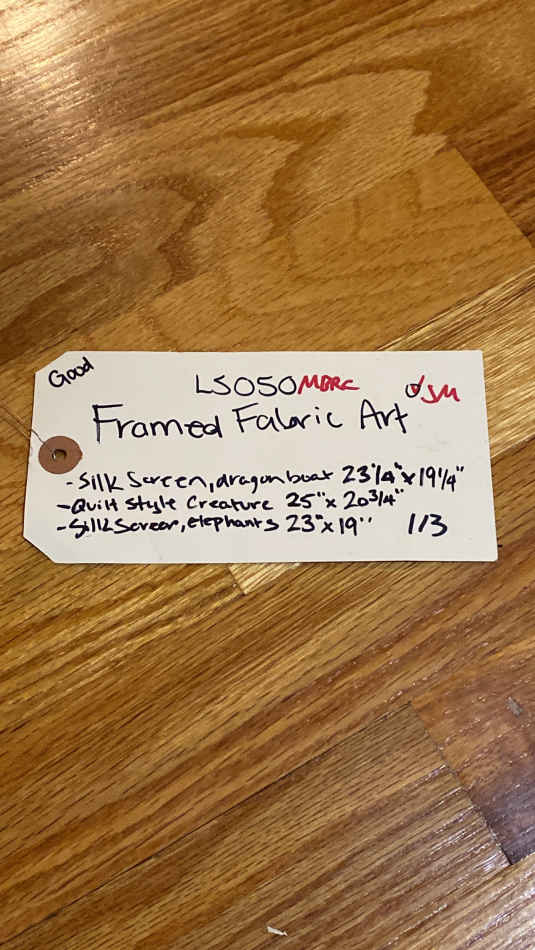 Good
LS050MBRC JSM
Framed Fabric Art
-Silk Screen, dragon boat 23 1/4" x 19 1/4"
-Quilt Style Creature 25" x 20 3/4"
-Silk Screen, elephants 23" x 19" 1/3